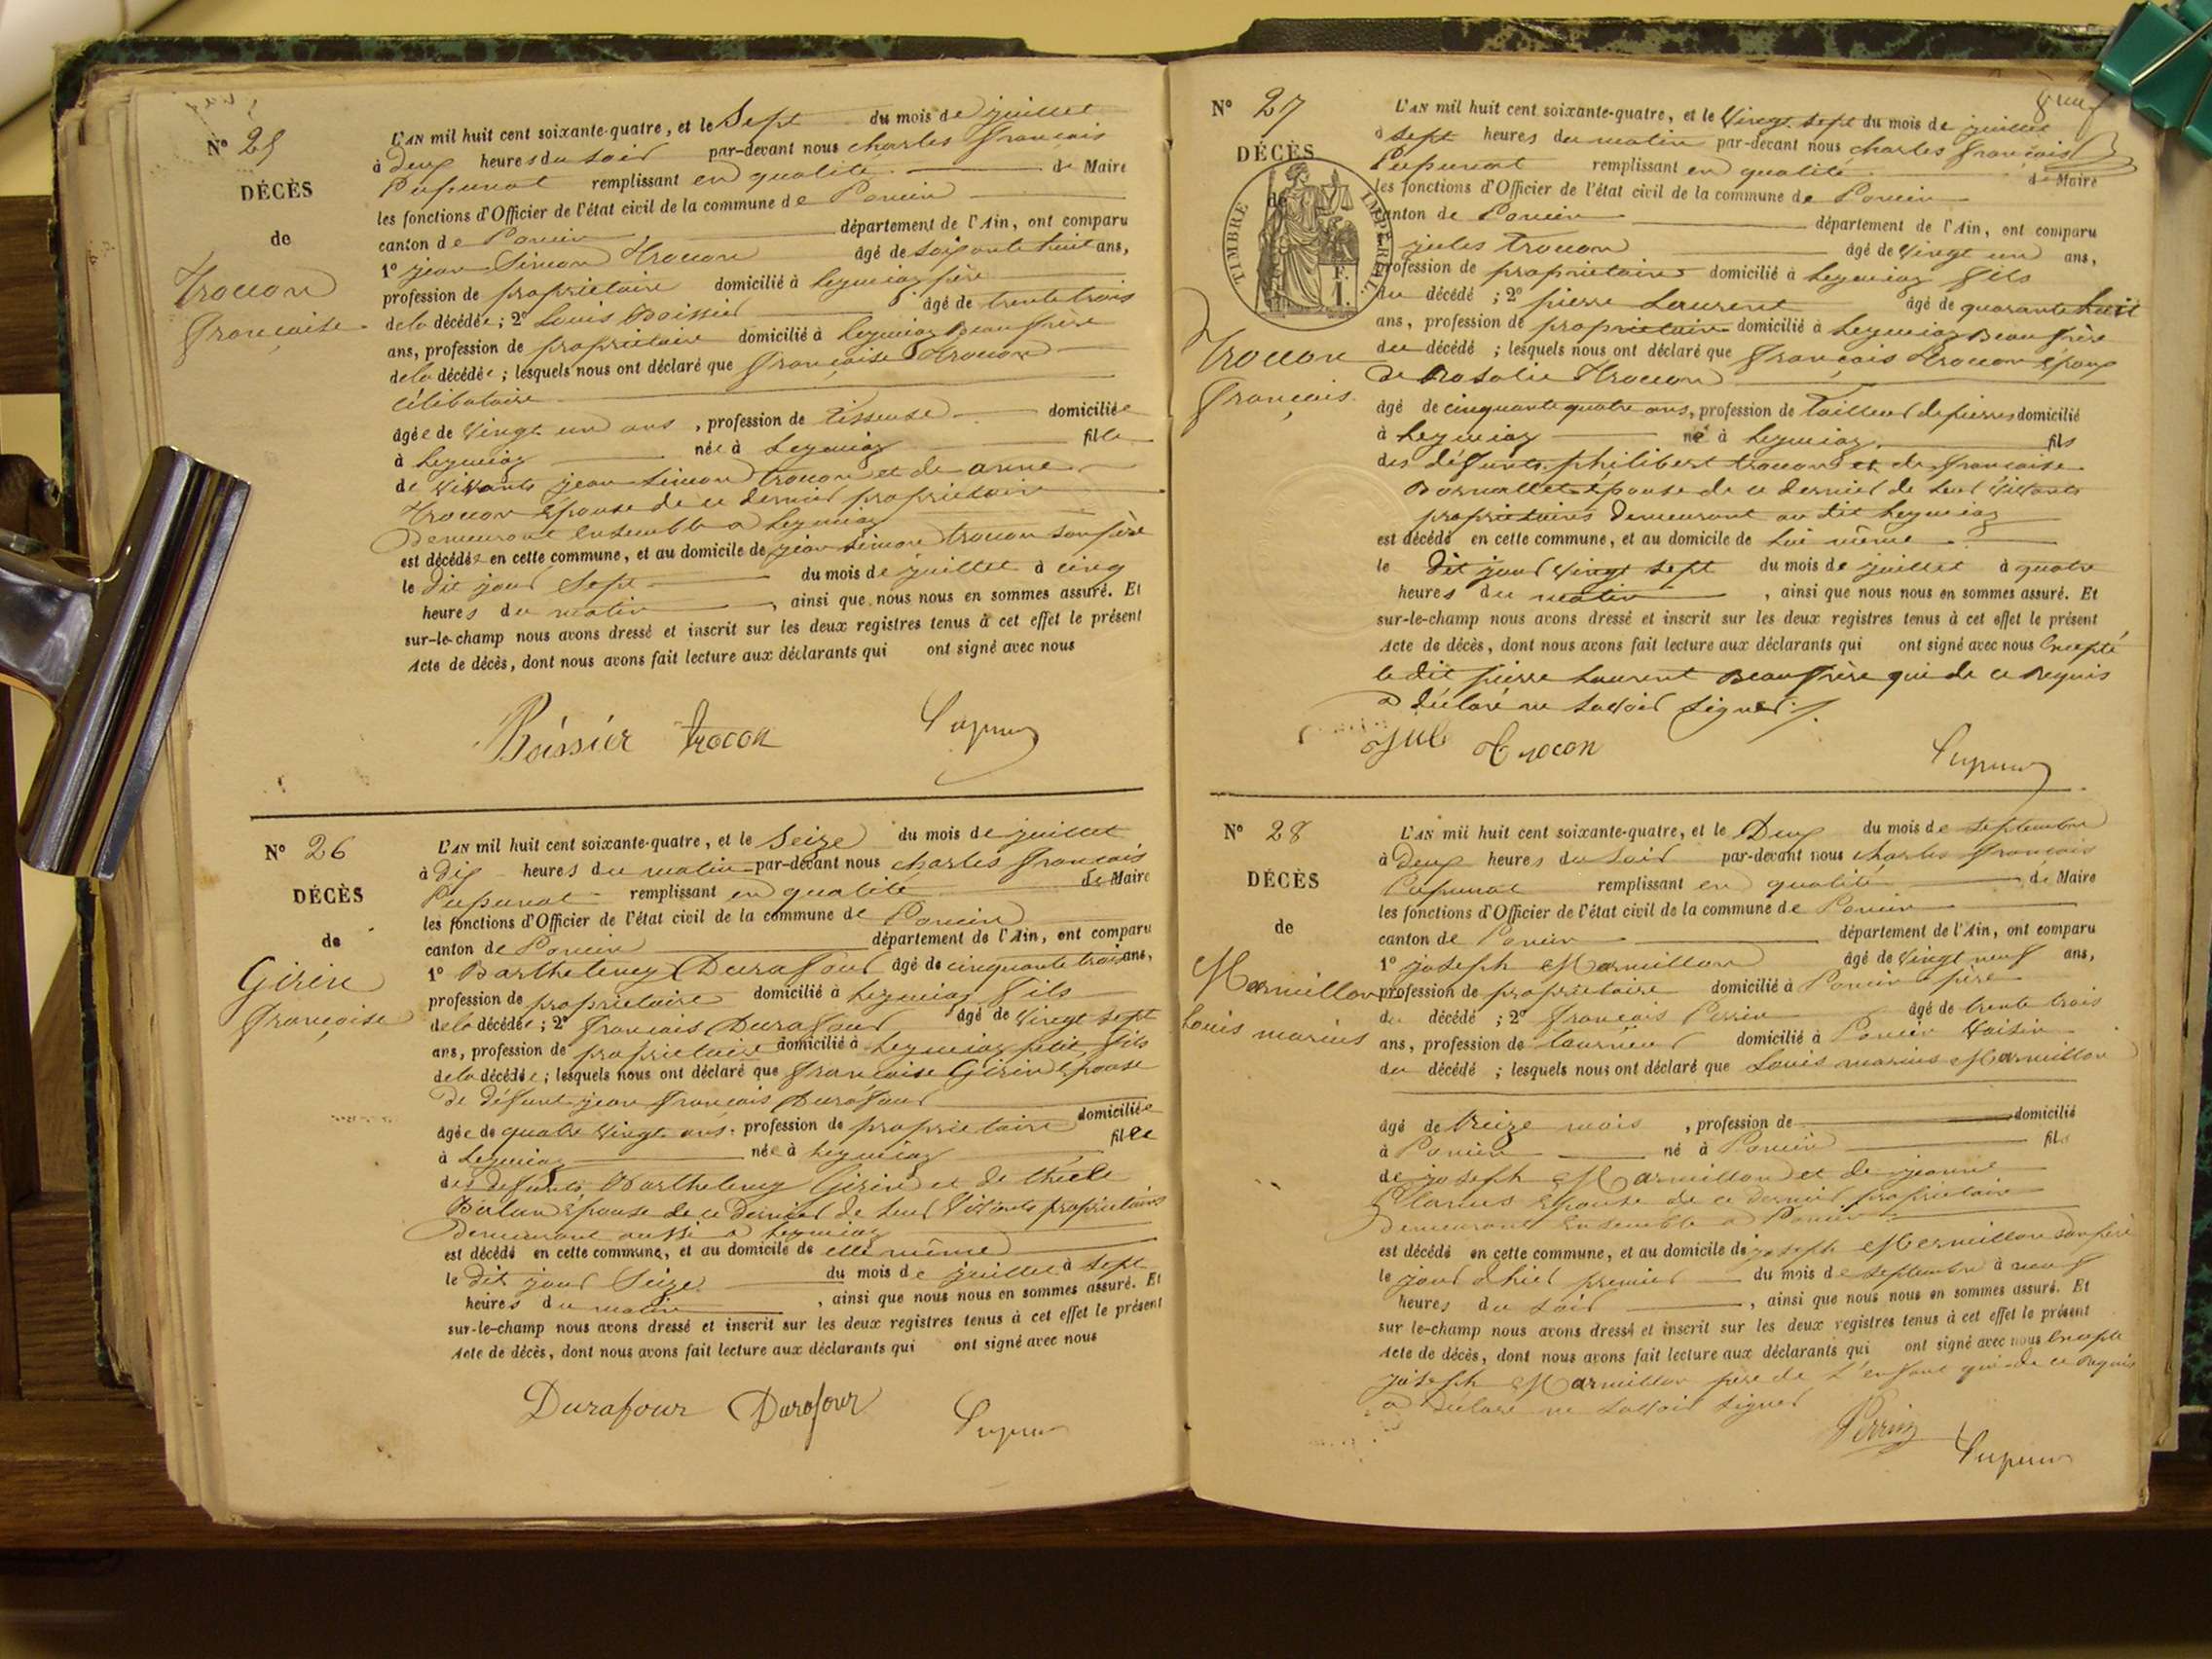 N° 25
DÉCÈS
de
Trocon
françoise
L'AN mil huit cent soixante-quatre, et le Sept du mois de juillet
à deux heures du soir par-devant nous charles françois
Pupunat remplissant en qualité de Maire
les fonctions d'Officier de l'état civil de la commune de Poncin
canton de Poncin département de l'Ain, ont comparu
1° jean Simon Trocon âgé de soixante huit ans,
profession de propriétaire domicilié à Leymiaz père
de la décédée; 2° Louis Boissier âgé de trente trois
ans, profession de propriétaire domicilié à Leymiaz Beau frère
de la décédée; lesquels nous ont déclaré que françoise Trocon
célibataire
âgée de vingt un ans, profession de tisseuse domiciliée
à Leymiaz née à Leymiaz fille
de vivants jean simon trocon et de anne
Trocon épouse de ce dernier propriétaire
demeurant ensemble a Leymiaz
est décédée en cette commune, et au domicile de jean simon trocon son père
le dit jour Sept du mois de juillet à cinq
heures du matin, ainsi que nous nous en sommes assuré. Et
sur-le-champ nous avons dressé et inscrit sur les deux registres tenus à cet effet le présent
Acte de décès, dont nous avons fait lecture aux déclarants qui ont signé avec nous
Boissier trocon
N° 26
DÉCÈS
de
Girin
françoise
L'AN mil huit cent soixante-quatre, et le Seize du mois de juillet
à dix heures du matin par-devant nous charles françois
Pupunat remplissant en qualité de Maire
les fonctions d'Officier de l'état civil de la commune de Poncin
canton de Poncin département de l'Ain, ont comparu
1° Barthelemy Durafour âgé de cinquante trois ans,
profession de propriétaire domicilié à Leymiaz fils
de la décédée; 2° françois Durafour âgé de vingt sept
ans, profession de propriétaire domicilié à Leymiaz petit fils
de la décédée; lesquels nous ont déclaré que françoise Girin épouse
de défunt jean françois Durafour
âgée de quatre vingt ans, profession de propriétaire domiciliée
à Leymiaz née à Leymiaz fille
des défunts Barthelemy Girin et de
épouse de ce dernier de leur vivants propriétaires
demeurant aussi a Leymiaz
est décédé en cette commune, et au domicile de elle même
le dit jour Seize du mois de juillet à sept
heures du matin, ainsi que nous nous en sommes assuré. Et
sur-le-champ nous avons dressé et inscrit sur les deux registres tenus à cet effet le présent
Acte de décès, dont nous avons fait lecture aux déclarants qui ont signé avec nous
Durafour Durafour
N° 27
DÉCÈS
de
TIMBRE IMPÉRIAL
F. 1.
Trocon
françois
L'AN mil huit cent soixante-quatre, et le Vingt sept du mois de juillet
à sept heures du matin par-devant nous charles françois
Pupunat remplissant en qualité de Maire
les fonctions d'Officier de l'état civil de la commune de Poncin
canton de Poncin département de l'Ain, ont comparu
jules trocon âgé de vingt un ans,
profession de propriétaire domicilié à Leymiaz fils
du décédé; 2° pierre Laurent âgé de quarante huit
ans, profession de propriétaire domicilié à Leymiaz Beau frère
du décédé; lesquels nous ont déclaré que françois Trocon époux
de Rosalie Trocon
âgé de cinquante quatre ans, profession de tailleur de pierres domicilié
à Leymiaz né à Leymiaz fils
des défunts philibert trocon et de françoise
épouse de ce dernier de leur vivants
propriétaires demeurant au dit Leymiaz
est décédé en cette commune, et au domicile de lui même
le dit jour vingt sept du mois de juillet à quatre
heures du matin, ainsi que nous nous en sommes assuré. Et
sur-le-champ nous avons dressé et inscrit sur les deux registres tenus à cet effet le présent
Acte de décès, dont nous avons fait lecture aux déclarants qui ont signé avec nous Excepté
le dit pierre Laurent Beau frère qui de ce Requis
a déclaré ne savoir signer
Jule Trocon
N° 28
DÉCÈS
de
Marmillon
Louis marius
L'AN mil huit cent soixante-quatre, et le Deux du mois de septembre
à Deux heures du soir par-devant nous charles françois
Pupunat remplissant en qualité de Maire
les fonctions d'Officier de l'état civil de la commune de Poncin
canton de Poncin département de l'Ain, ont comparu
1° joseph Marmillon âgé de vingt neuf ans,
profession de propriétaire domicilié à Poncin père
du décédé; 2° françois Perrin âgé de trente trois
ans, profession de tourneur domicilié à Poncin voisin
du décédé; lesquels nous ont déclaré que Louis marius Marmillon
âgé de treize mois, profession de domicilié
à Poncin né à Poncin fils
de joseph Marmillon et de jeanne
épouse de ce dernier propriétaire
demeurant ensemble a Poncin
est décédé en cette commune, et au domicile de joseph Marmillon son père
le jour d'hier premier du mois de septembre à neuf
heures du soir, ainsi que nous nous en sommes assuré. Et
sur le-champ nous avons dressé et inscrit sur les deux registres tenus à cet effet le présent
Acte de décès, dont nous avons fait lecture aux déclarants qui ont signé avec nous Excepté
joseph Marmillon père de l'enfant qui de ce Requis
a déclaré ne savoir signer
Perrin